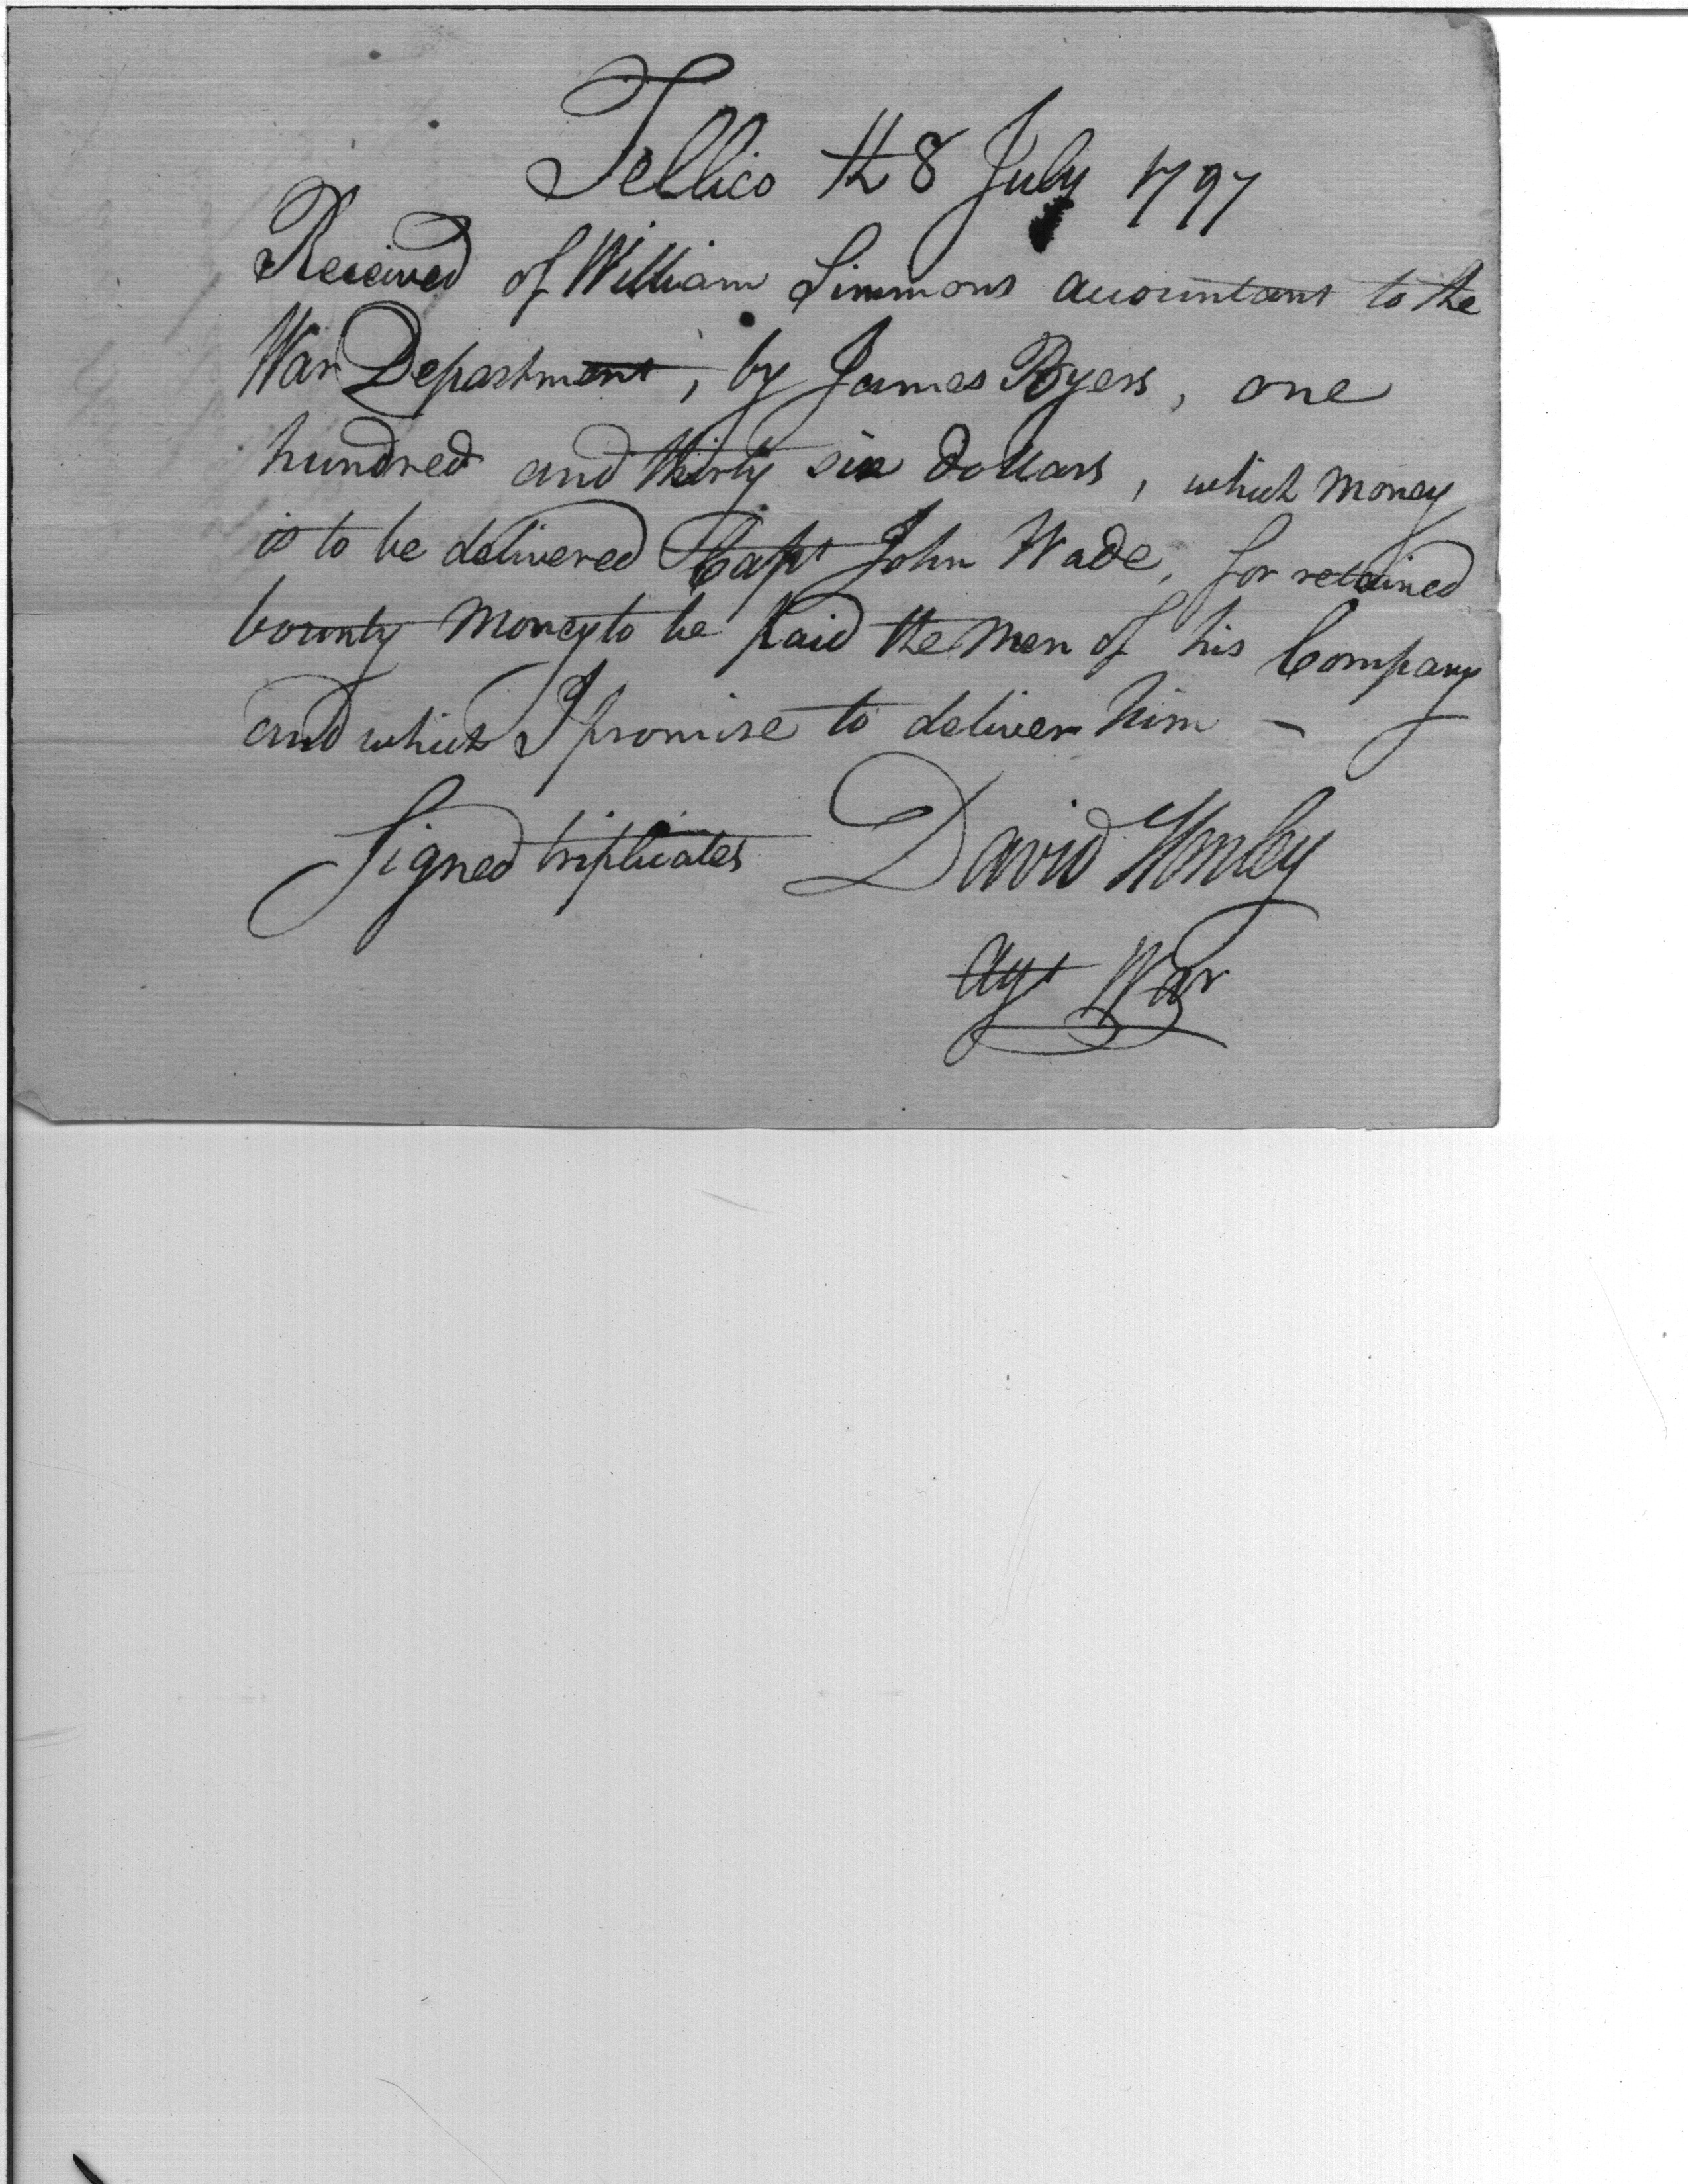 Tellico the 8 July 1797
Received of William Simmons accountant to the
War Department, by James Byers, one
hundred and thirty six dollars, which money
is to be delivered Capt John Wade, for retained
bounty money to be paid the men of his Company
and which I promise to deliver him -
Signed triplicates David Henley
Agt War